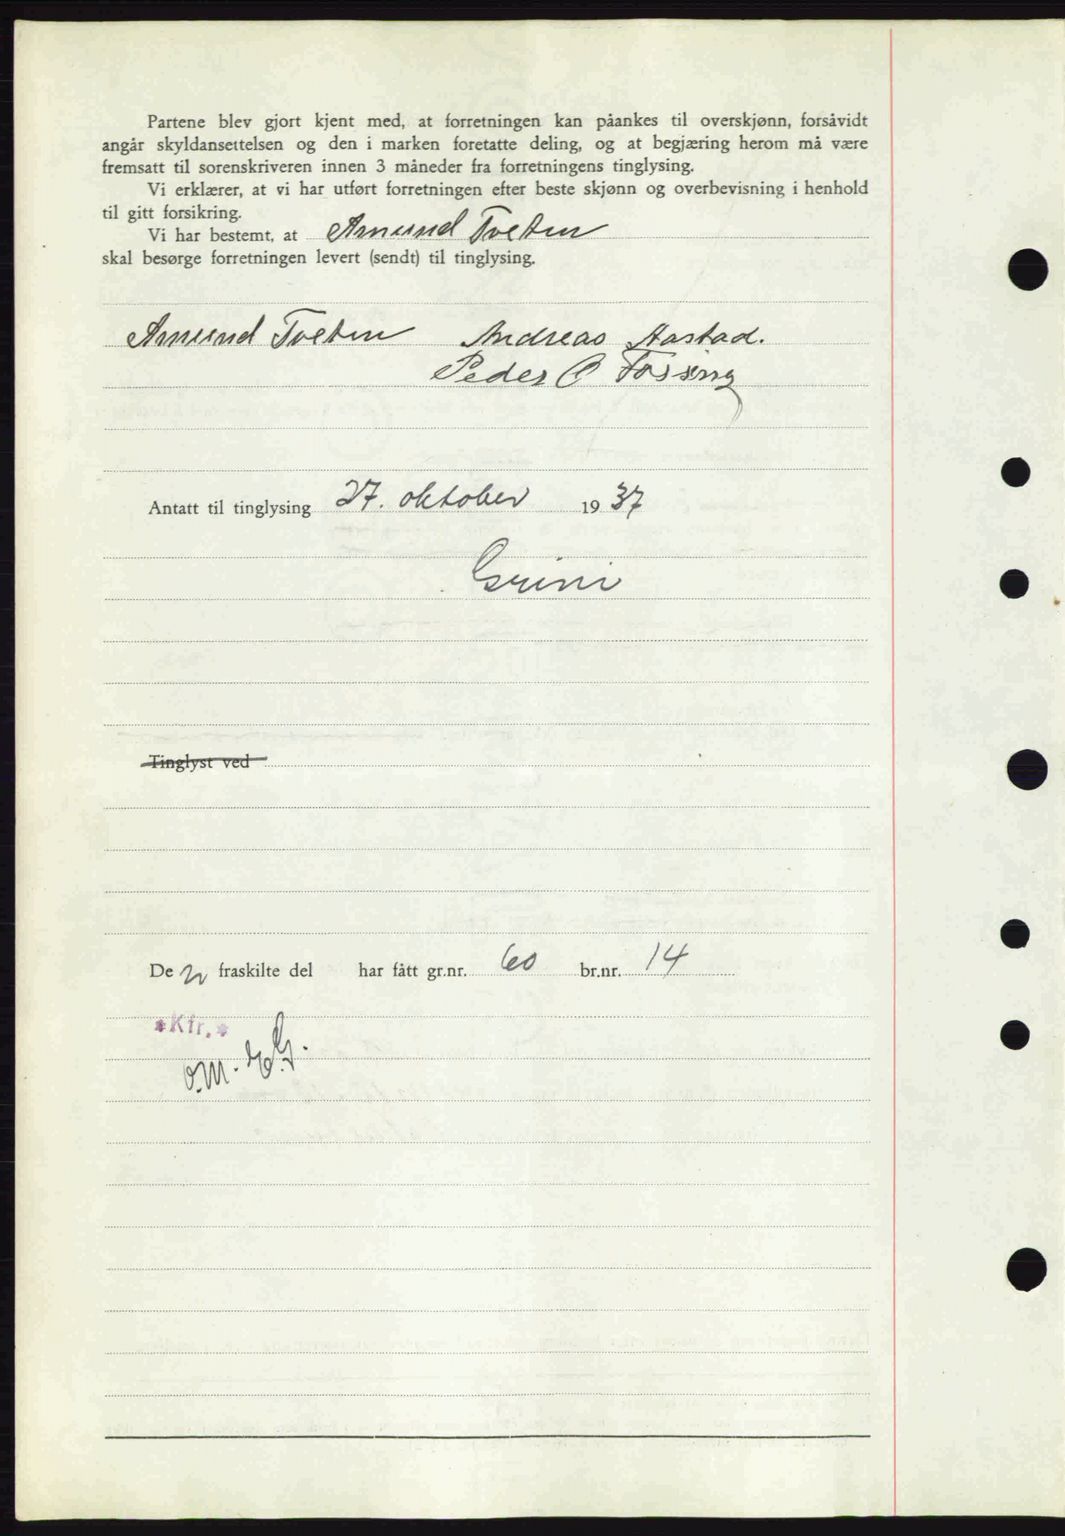 Partene blev gjort kjent med, at forretningen kan påankes til overskjønn, forsåvidt
angår skyldansettelsen og den i marken foretatte deling, og at begjæring herom må være
fremsatt til sorenskriveren innen 3 måneder fra forretningens tinglysing.
Vi erklærer, at vi har utført forretningen efter beste skjønn og overbevisning i henhold
til gitt forsikring.
Vi har bestemt, at Amund Tveten
skal besørge forretningen levert (sendt) til tinglysing.
Amund Tveten Andreas Aastad.
Peder O Fossing
Antatt til tinglysing 27. oktober 1937
Grini
Tinglyst ved
De n fraskilte del har fått gr.nr. 60 br.nr. 14
*Kfr.*
O.M. E.G.